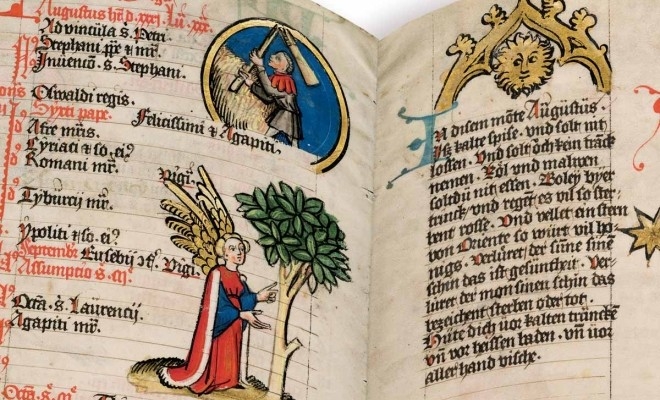 Augustus hñ d. xxxj. Lũ. xxx.
Ad vincula s. Petri
Stephani ꝓꝑ & mr̃.
Inuencio. s. Stephani.
Oswaldi regis.
Sixti pape.
Felicissimi & Agapiti.
Afre mr̃is.
Cyriaci & so. ei9
Romani mr̃.
Vigi.
Tyburcij mr̃.
Ypoliti & so. ei9
Eusebij Vigi.
Assumptio s.
Octã. s. Laurencij.
Agapiti mr̃.
In disem mõte Augustus.
kalte spise. vnd solt nit
lossen. Vnd solt doch kein trãck
nemen. Köl vnd malwen
soltdu nit essen. Boley byer
trinck vnd reget es vil so ster-
bent rosse. Vnd vellet ein stern
von Oriente so würt vil ho-
nigs. Verlüret der sũne sinē
schin das ist gesuntheit. Ver-
lüret der mon sinen schin das
bezeichent sterben oder tot.
Hüte dich uor kalten trincken
vñ vor heissen baden. vñ uor
aller hand vische.